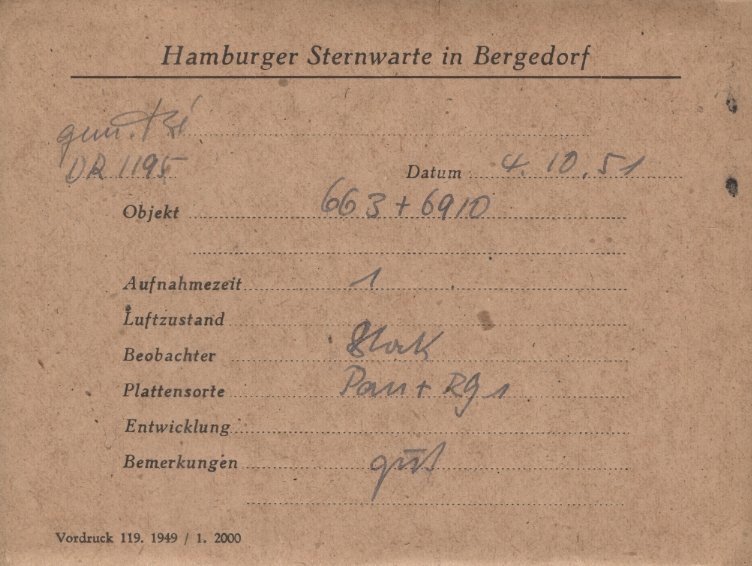 Hamburger Sternwarte in Bergedorf
gem.
DR 1195
Datum 4.10.51
Objekt 663+6910
Aufnahmezeit 1
Luftzustand
Beobachter
Plattensorte Pan + Rg 1
Entwicklung
Bemerkungen gut
Vordruck 119. 1949 / 1. 2000